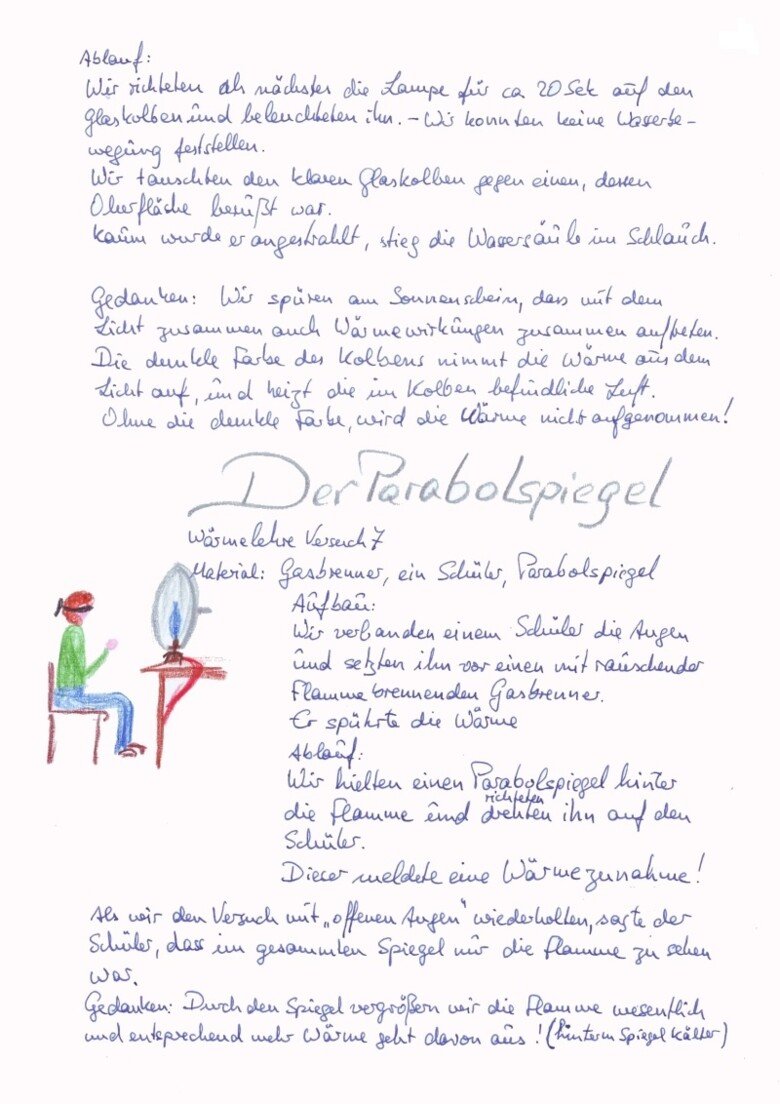 Ablauf:
Wir richteten als nächstes die Lampe für ca 20 Sek auf den
Glaskolben und beleuchteten ihn. – Wir konnten keine Wasserbe-
wegung feststellen.
Wir tauschten den klaren Glaskolben gegen einen, dessen
Oberfläche berußt war.
Kaum wurde er angestrahlt, stieg die Wassersäule im Schlauch.
Gedanken: Wir spüren am Sonnenschein, dass mit dem
Licht zusammen auch Wärmewirkungen zusammen auftreten.
Die dunkle Farbe des Kolbens nimmt die Wärme aus dem
Licht auf, und heizt die im Kolben befindliche Luft.
Ohne die dunkle Farbe, wird die Wärme nicht aufgenommen!
Der Parabolspiegel
Wärmelehre Versuch 7
Material: Gasbrenner, ein Schüler, Parabolspiegel
Aufbau:
Wir verbanden einem Schüler die Augen
und setzten ihn vor einen mit rauschender
Flamme brennenden Gasbrenner.
Er spührte die Wärme
Ablauf:
Wir hielten einen Parabolspiegel hinter
richteten
die Flamme und drehten ihn auf den
Schüler.
Dieser meldete eine Wärmezunahme!
Als wir den Versuch mit „offenen Augen" wiederholten, sagte der
Schüler, dass im gesammten Spiegel nur die Flamme zu sehen
war.
Gedanken: Durch den Spiegel vergrößern wir die Flamme wesentlich
und entsprechend mehr Wärme geht davon aus! (hinterm Spiegel kälter)